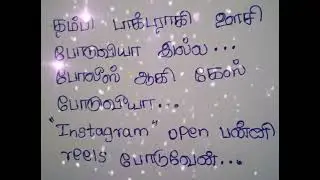 தம்பி டாக்டராகி ஊசி
போடுவியா இல்ல...
போலீஸ் ஆகி கேஸ்
போடுவியா...
"Instagram" open பண்ணி
reels போடுவேன்...